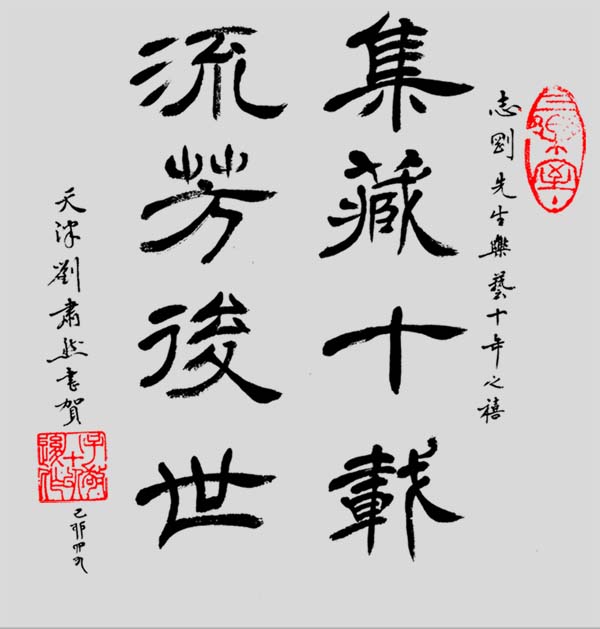 志剛先生樂藝十年之禧
集藏十載
流芳後世
天津劉肅然書賀
己卯四九